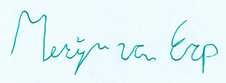 Merijn van Erp